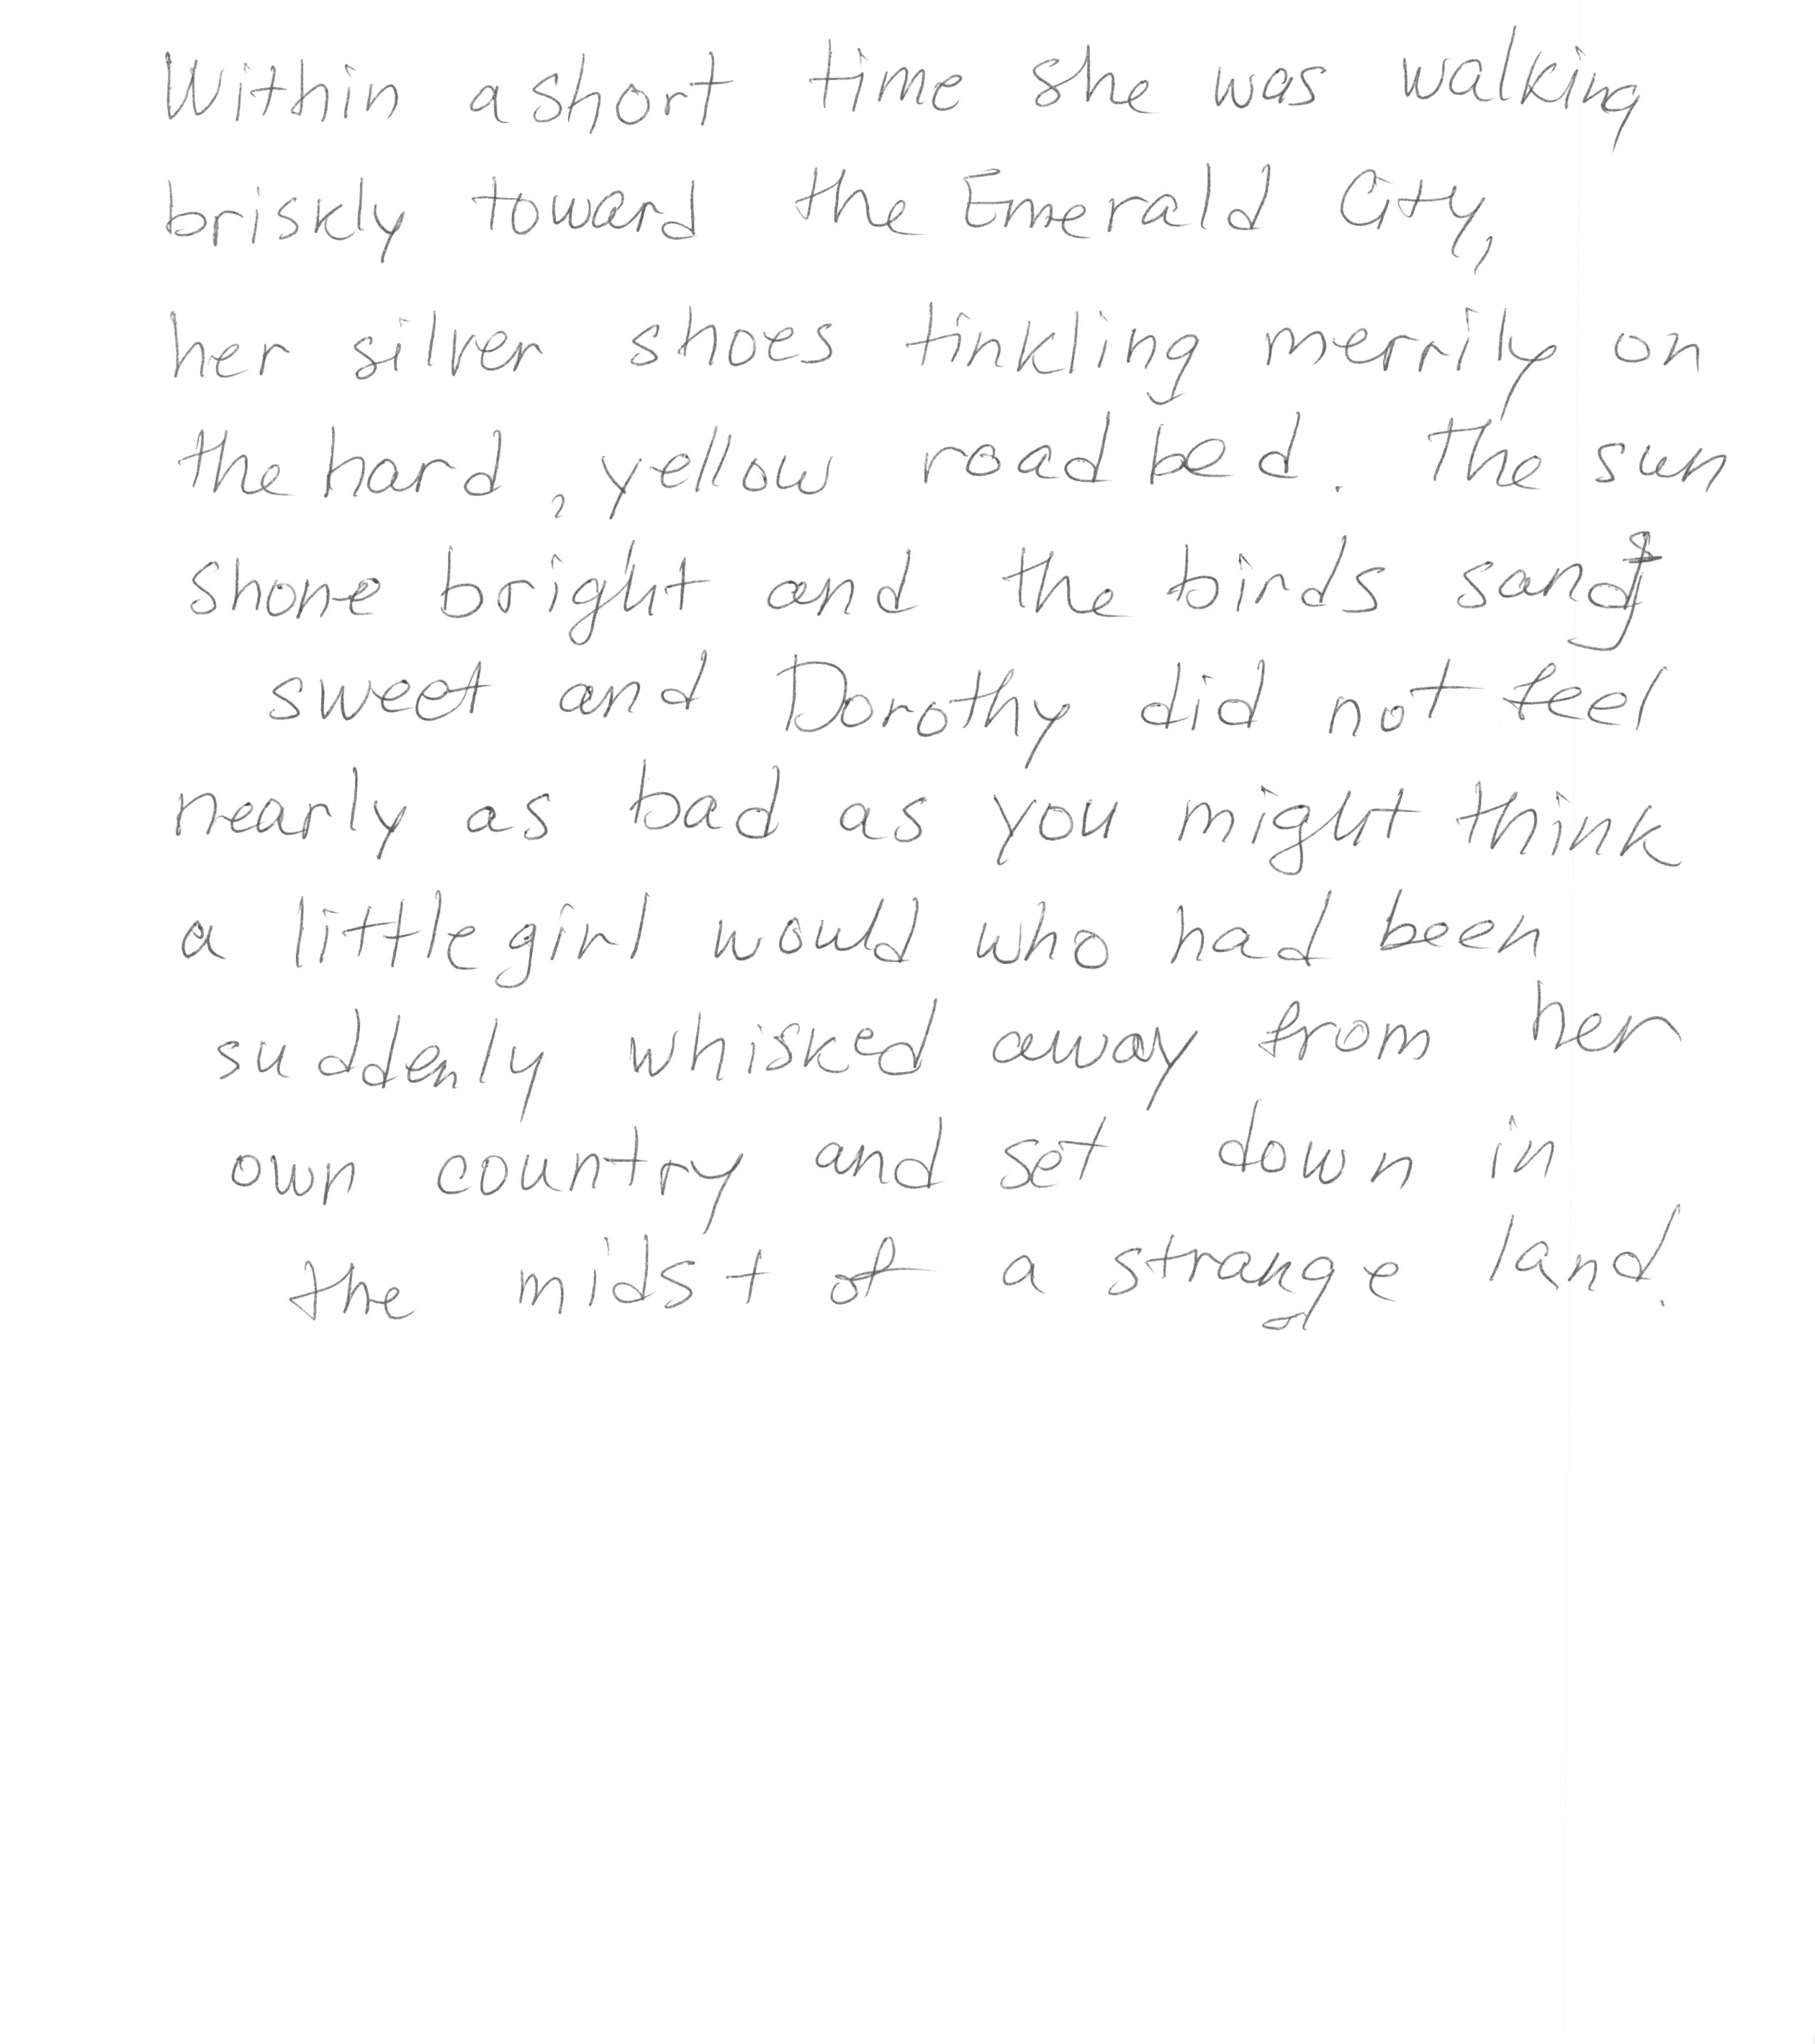 Within a short time she was walking
briskly toward the Emerald City,
her silver shoes tinkling merrily on
the hard, yellow road bed. The sun
shone bright and the birds sang
sweet and Dorothy did not feel
nearly as bad as you might think
a little girl would who had been
suddenly whisked away from her
own country and set down in
the midst of a strange land.